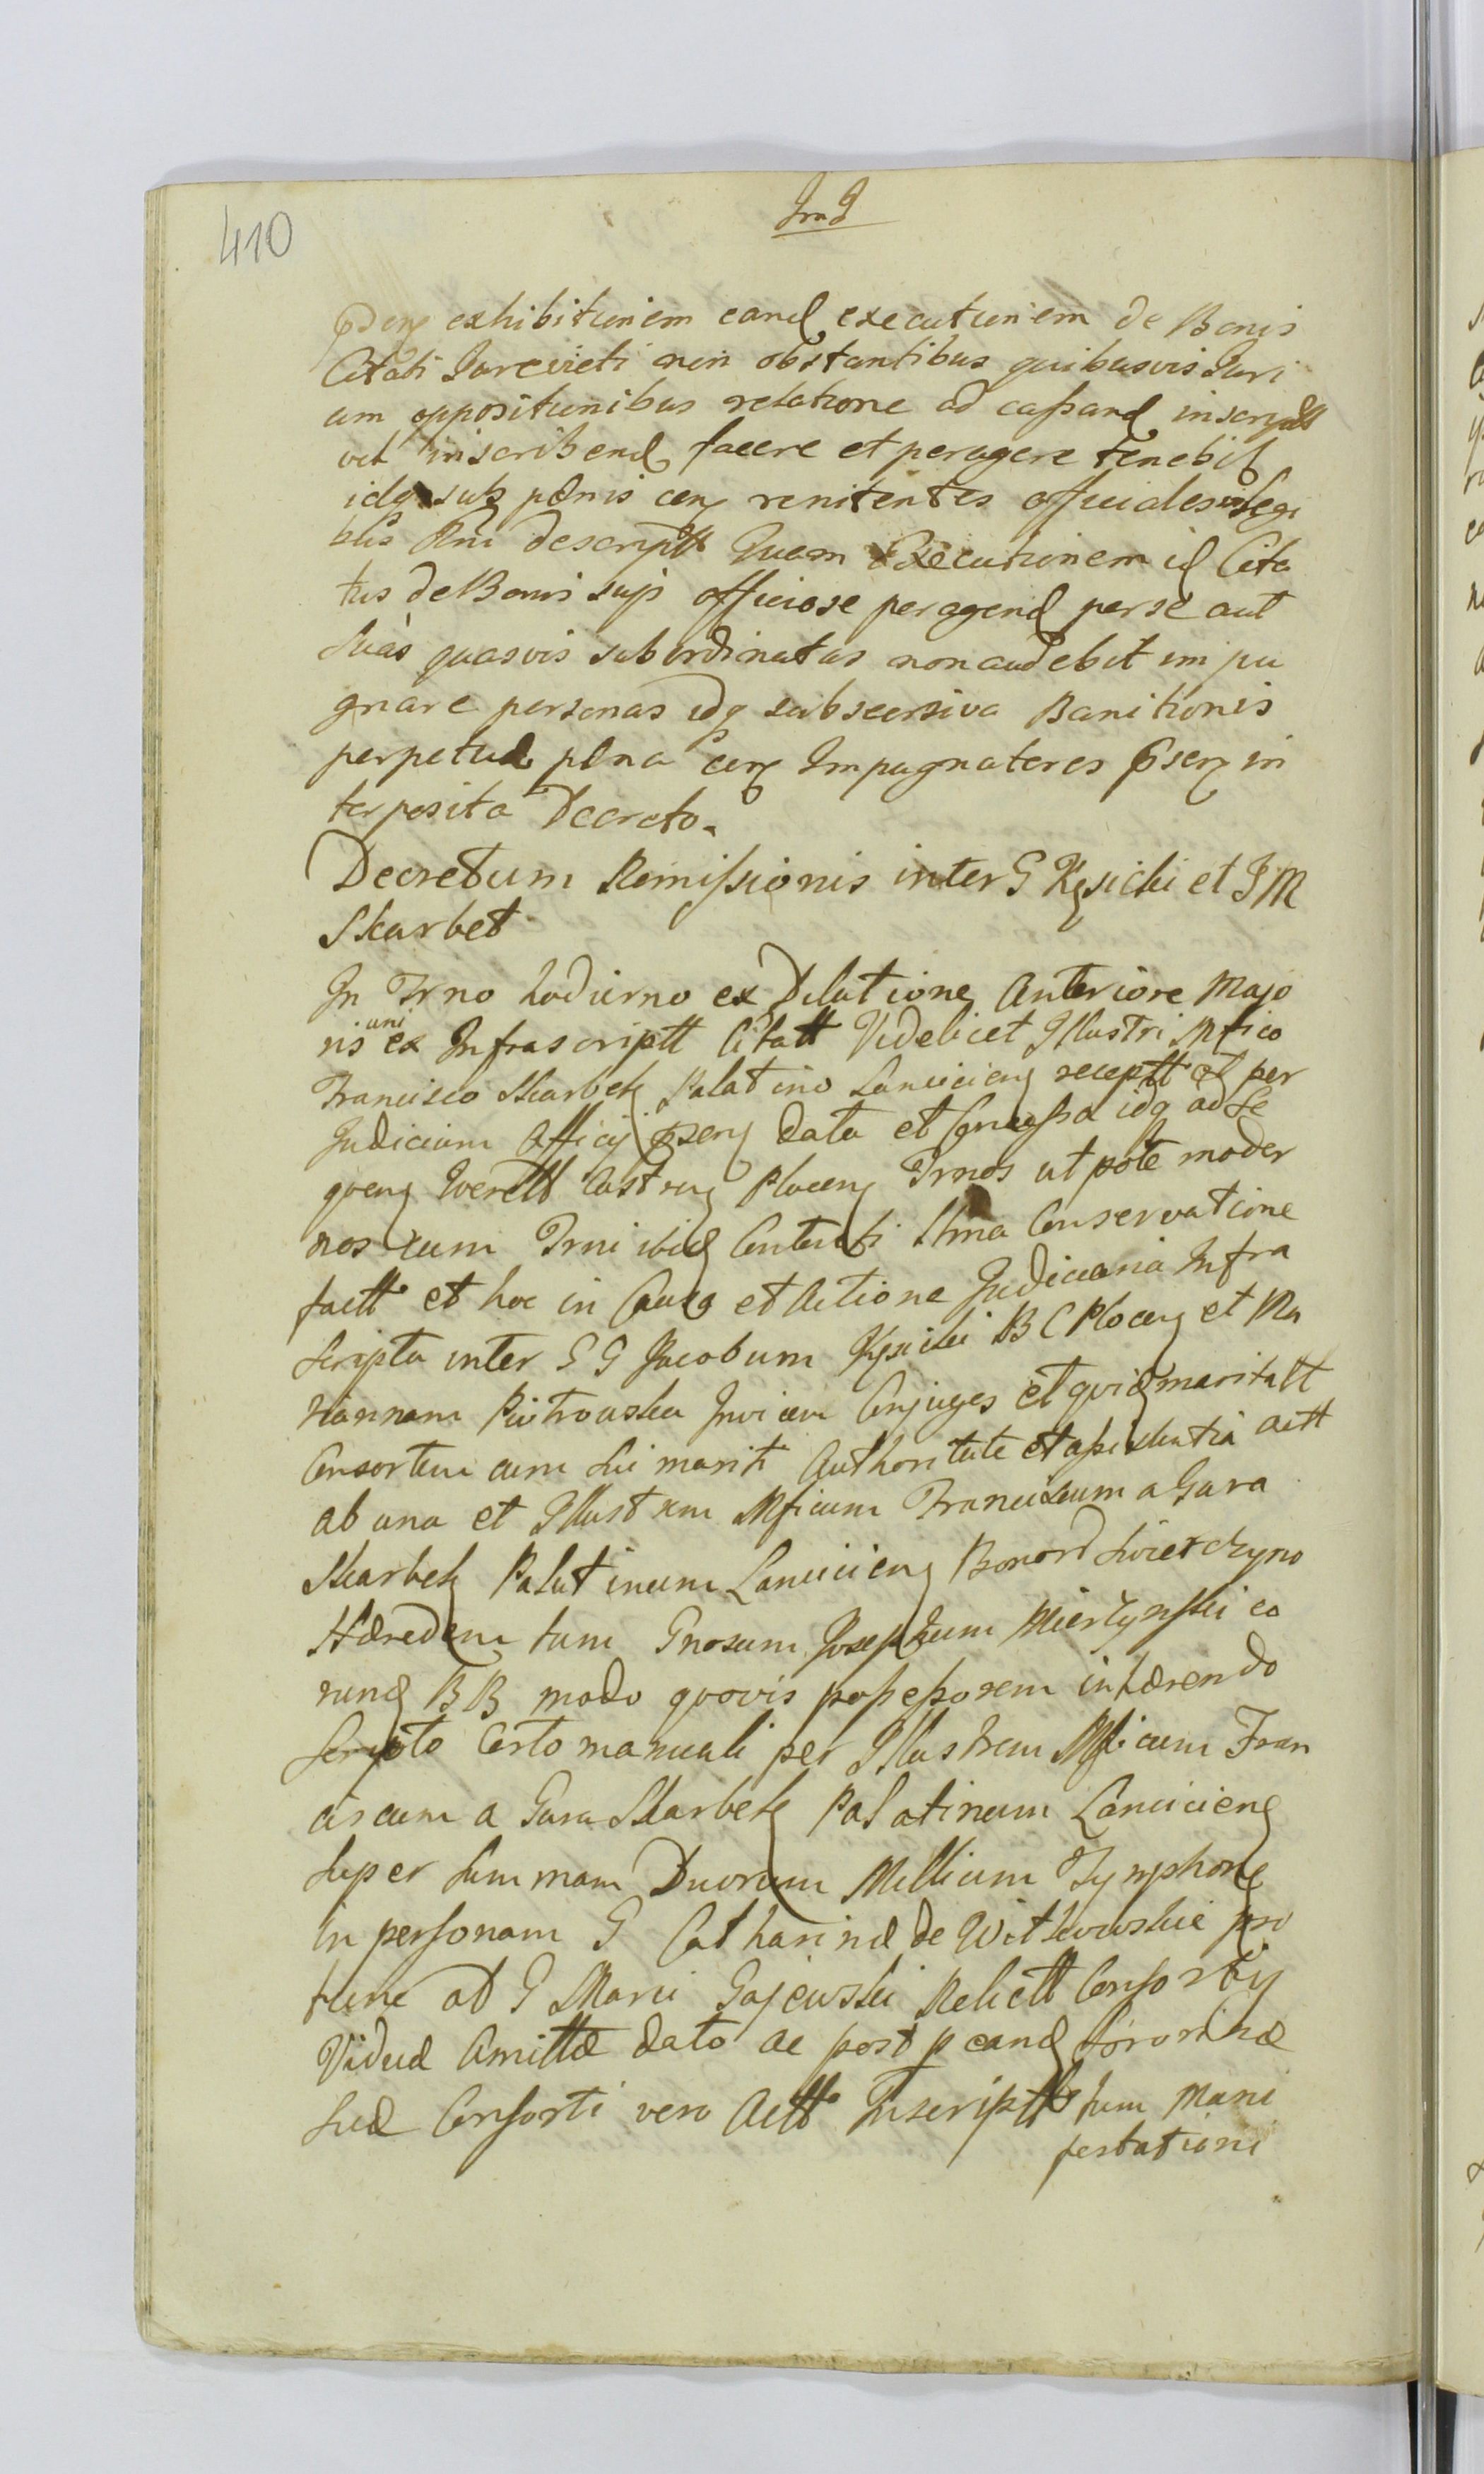 410
exhibitionem eand executionem de Bonis
Citati Jurevicti non obstantibus quibusvis Juri
um oppositionibus relatione ad cassand inscriptt
vel inscribend facere et peragere tenebit
idq sub pænis renitentes officiales Legi
bus Rni descriptt Quam Executionem id Cita
tus de Bonis suis officiose peragend per se aut
Suas quasvis subordinatas non audebit impu
gnare personas idq sub Banitionis
perpetuæ pæna Impugnatores in
terposita Decreto.
Decretum Remissionis inter G Kęsicki et J M
Skarbek
In Trno hodierno ex Dilatione Anteriore Majo
ris uni ex Infrascriptt Citatt Videlicet Illustri Mfico
Francisco Skarbek Palatino Lancicien receptt et per
Judicium Officij psen data et Concessa idq ad Se
quen Castren Plocen Trnos utpote moder
nos cum Trni ibid Contenti Conservatione
factt et hoc in Causa et Actione Judiciaria Infra
Scripta inter G G Jacobum Kęsicki B C Plocen et Ma
riannam Piotrowska Invicem Conjuges et quid maritatt
Consortem cum Sui mariti Authoritate et assistentia Actt
ab una et Illustrem Mficum Franciscum a Gara
Skarbek Palatinum Lancicien Bonor Swierczyno
Hæredem tum Gnosum Josephum Mierzynski eo
rund BB modo quovis possessorem inhærendo
Scripto Certo manuali per Illustrem Mficum Fran
ciscum a Gara Skarbek Palatinum Lancicien
Super Summam Duorum Millium Tymphon
in personam G Catharinæ de Witkowskie pro
tunc ab G Marci Gajewski Relictt Consortis
Viduæ Amittæ dato ac post p eand Sororinæ
Suæ Consorti vero Actt Inscriptt tum Mani
festationi